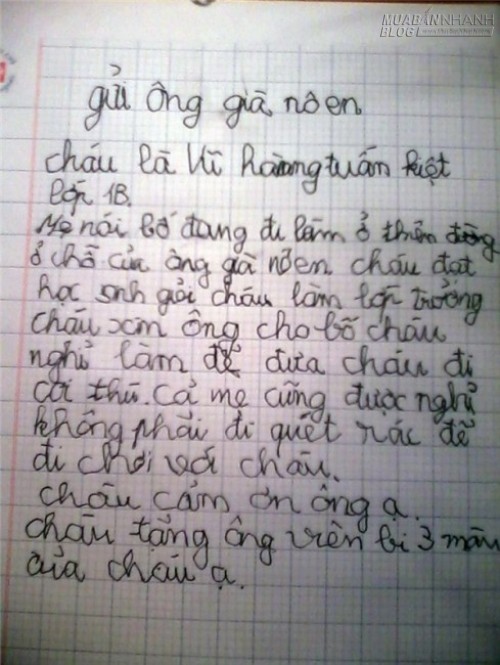 MUABANNHANH
BLOG
gửi ông già nô en
cháu là Vĩ hoàng tuấn kiệt
lớp 1B.
Mẹ nói bố đang đi làm ở thiên đường
ở chỗ của ông già nôen cháu đạt
học sinh giỏi cháu làm lớp trưởng
cháu xin ông cho bố cháu
nghỉ làm để đưa cháu đi
coi thú. Cả mẹ cũng được nghỉ
không phải đi quét rác để
đi chơi với cháu.
cháu cảm ơn ông ạ.
cháu tặng ông viên bi 3 màu
của cháu ạ.